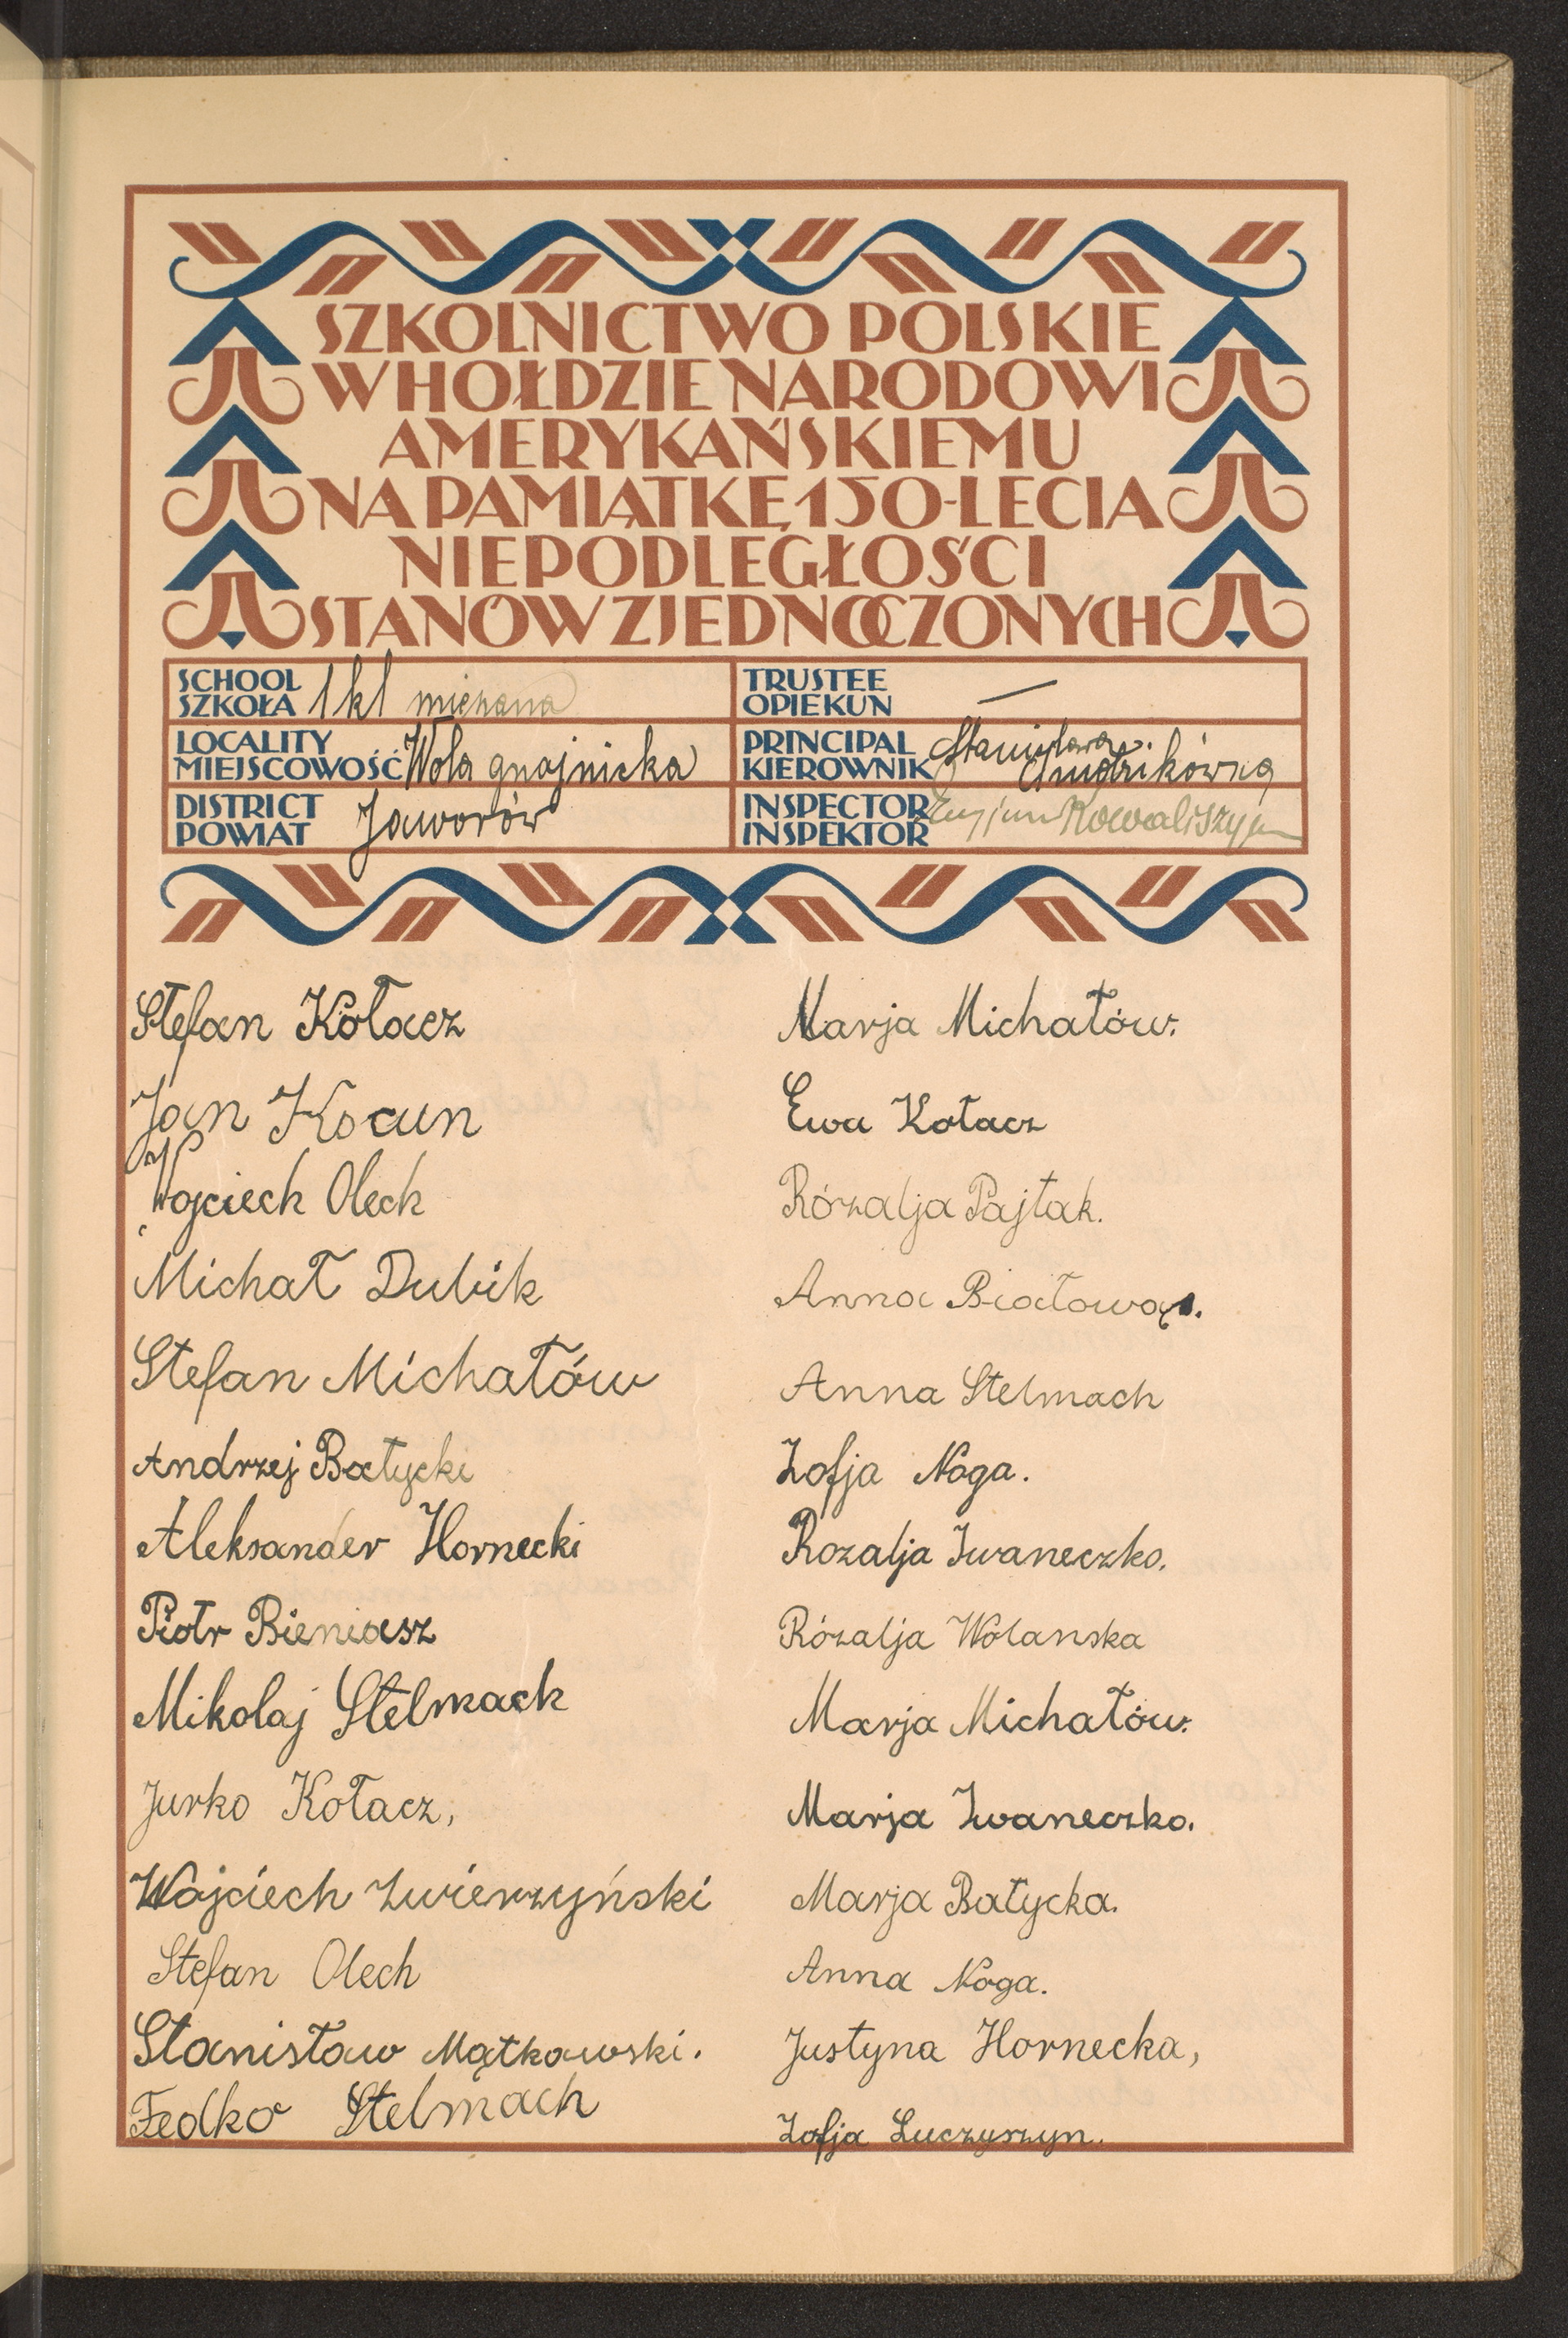 SZKOLNICTWO POLSKIE
W HOŁDZIE NARODOWI
AMERYKAŃSKIEMU
NA PAMIĄTKĘ 150-LECIA
NIEPODLEGŁOŚCI
STANÓW ZJEDNOCZONYCH
SCHOOL
SZKOŁA 1 kl mieszana
TRUSTEE
OPIEKUN —
LOCALITY
MIEJSCOWOŚĆ Wola gnojnicka
PRINCIPAL
KIEROWNIK Stanisława
DISTRICT
POWIAT Jaworów
INSPECTOR
INSPEKTOR Kowaliszyn
Stefan Kołacz
Jan Kocun
Wojciech Olech
Michał Dubik
Stefan Michałów
Andrzej Bałycki
Aleksander Hornecki
Piotr Bieniasz
Mikolaj Stelmach
Jurko Kołacz,
Wojciech Zwierzyński
Stefan Olech
Stanisław Mątkowski.
Fedko Stelmach
Marja Michałów.
Ewa Kołacz
Rózalja Pajtak.
Anna Białowąs.
Anna Stelmach
Zofja Noga.
Rozalja Iwaneczko.
Rózalja Wolanska
Marja Michałów.
Marja Iwaneczko.
Marja Bałycka.
Anna Noga.
Justyna Hornecka,
Zofja Łuczyszyn.